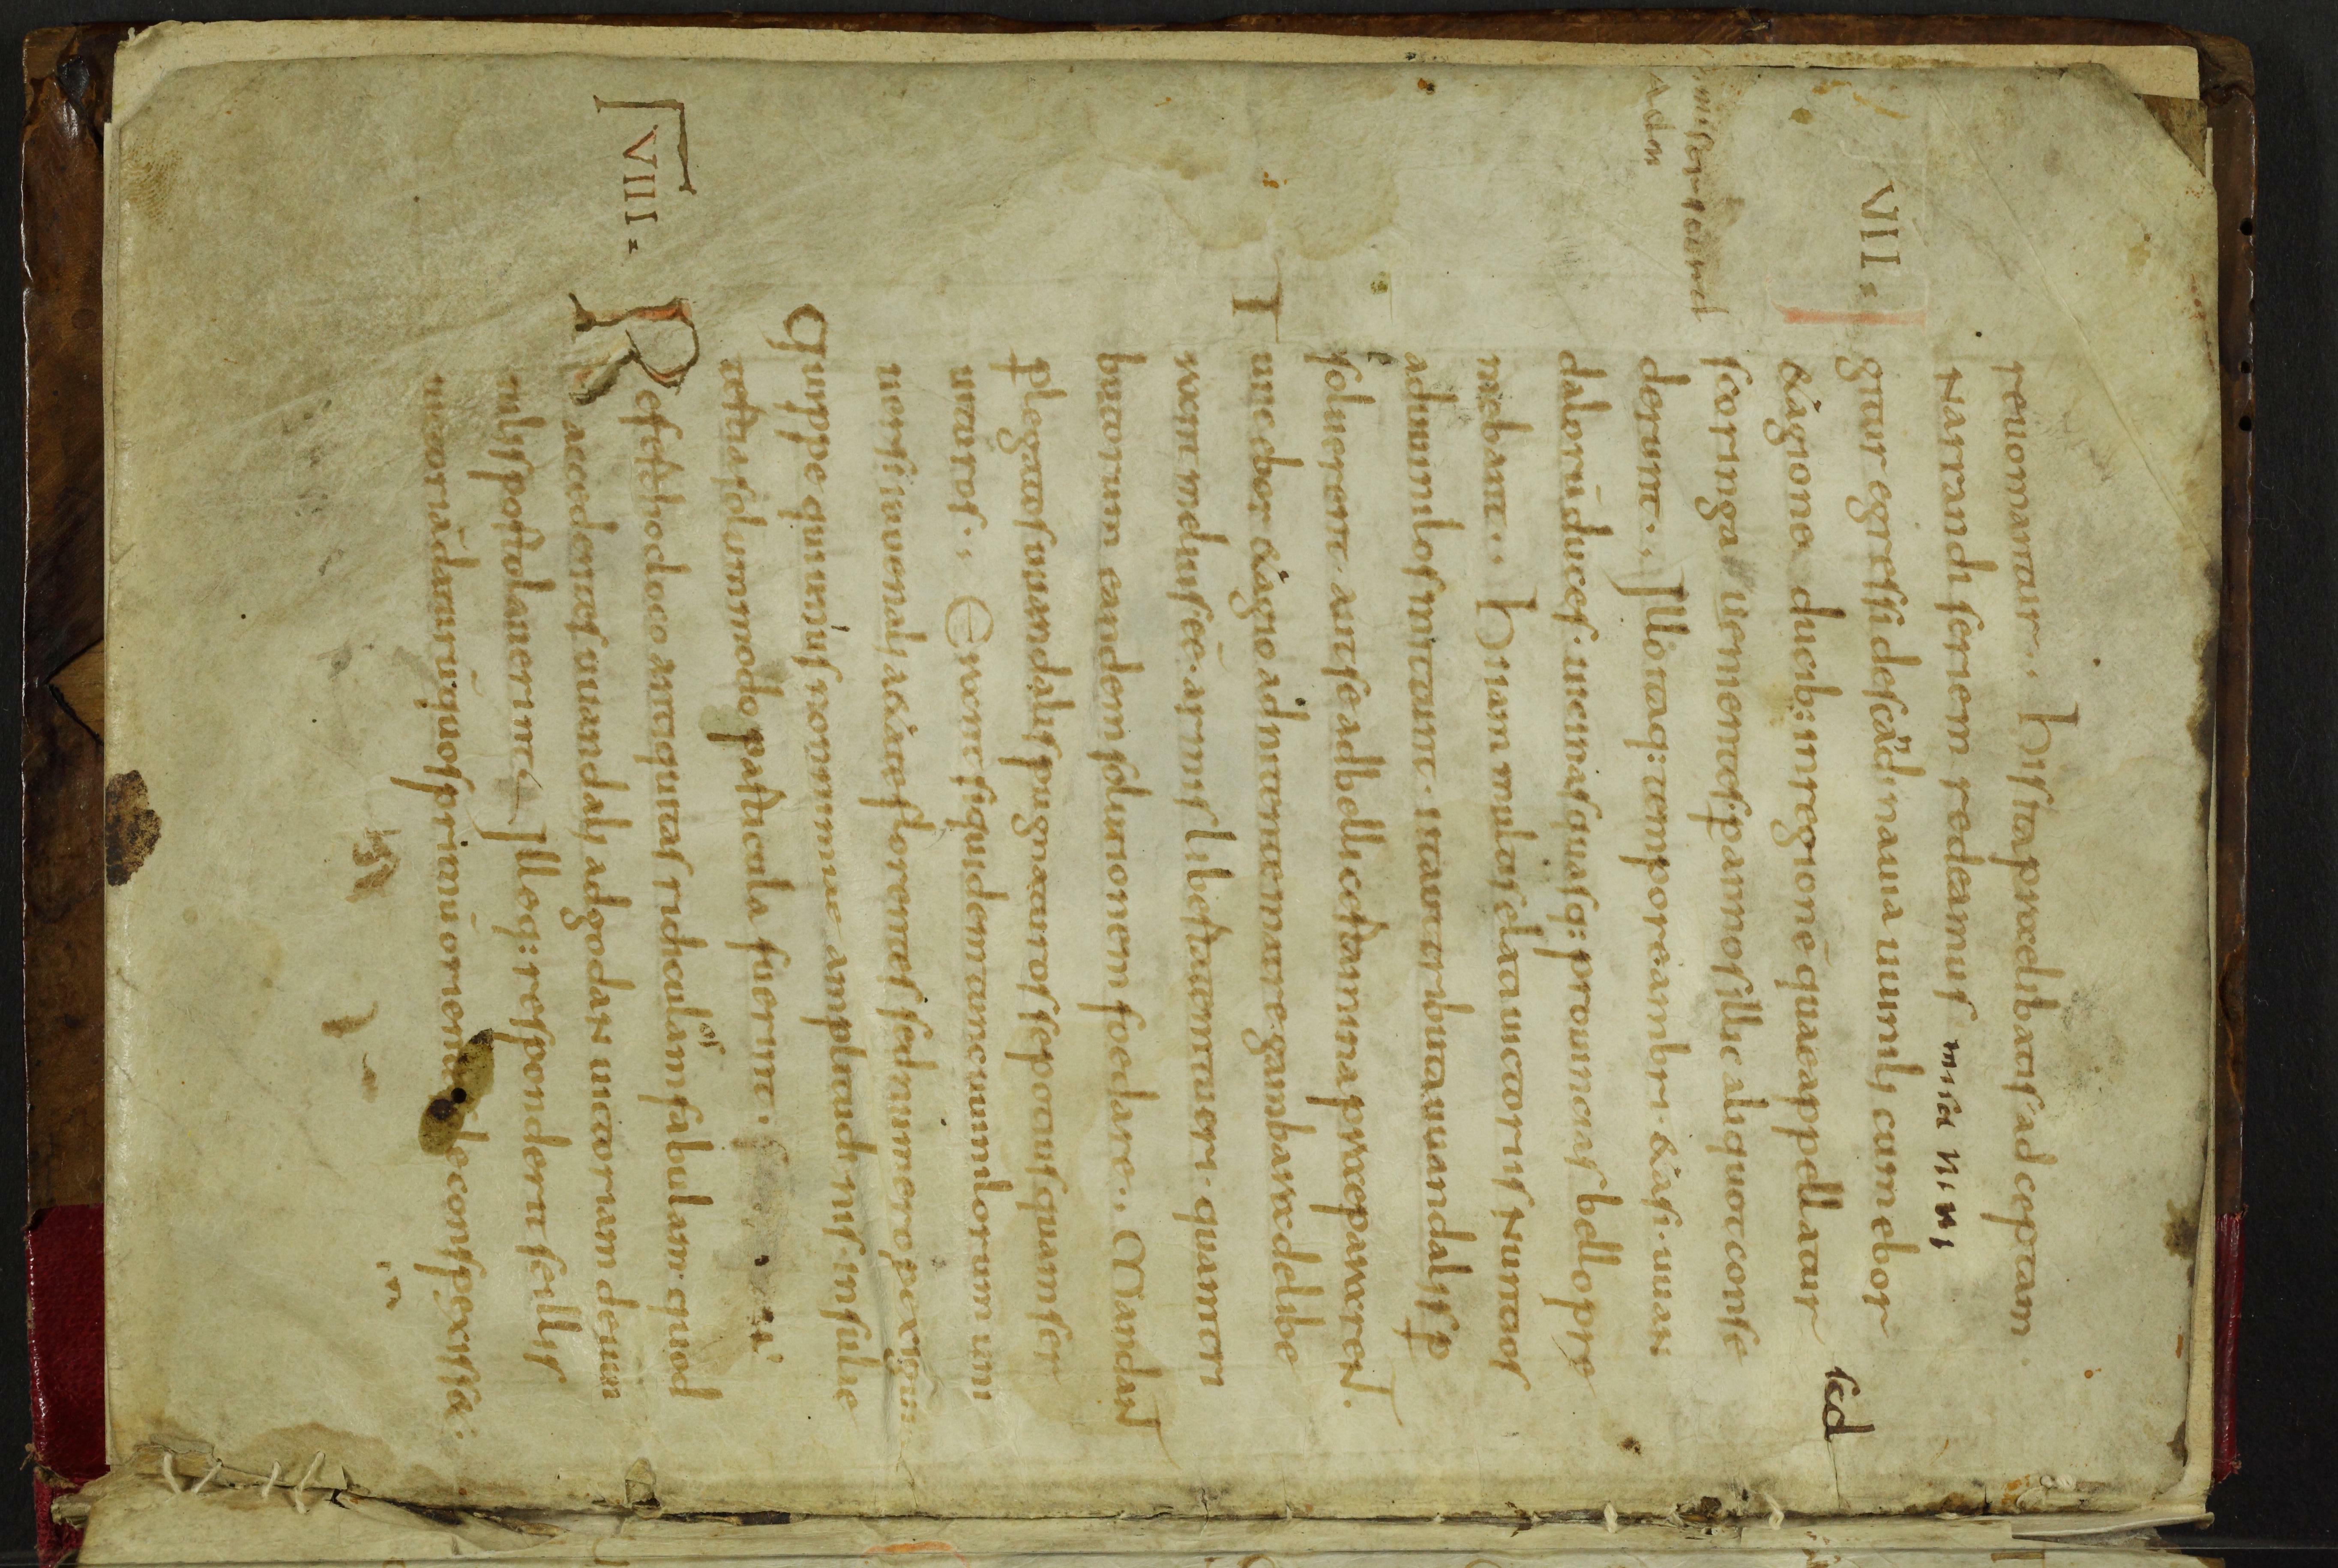 reuomantur·, His ita prælibatis ad ceptam
narrandi seriem redeamus
misa ni ni
VII.
gitur egressi de scadinauia uuinili, cum ebor
& agione ducib: in regionē quae appellatur
sed
scoringa uenientes, p annos illuc aliquot conse
derunt·, Illo itaq: tempore ambri & asi uuan
dalorū duces uicinas quasq: prouincias bello pre
mebant·, Hi iam multis elati uictoriis nuntios
ad uuinilos mittunt· ut aut tributa uuandalis p
soluerent· aut se ad belli certamina præpararent·
Tunc ebor & agio adnitente matre gambara delibe
rant melius eē armis libertatem tueri· quam tri
butorum eandem solutionem foedare·, Mandant
p legatos uuandalis pugnaturos se potius quam ser
uituros·, Erant siquidem tunc uuinilorum uni
uersi iuuenali aetate florentes sed numero perexigui
Quippe qui unius non nimiae amplitudinis insulae
tertia solummodo particula fuerint·
VIII.
Refert hoc loco antiquitas ridiculam fabulam· quod
accedentes uuandali, ad godan uictoriam de uui
nilis postolauerint, Illeq: responderit se illis
uictoriā daturū quos primū oriente sole conspexisset·